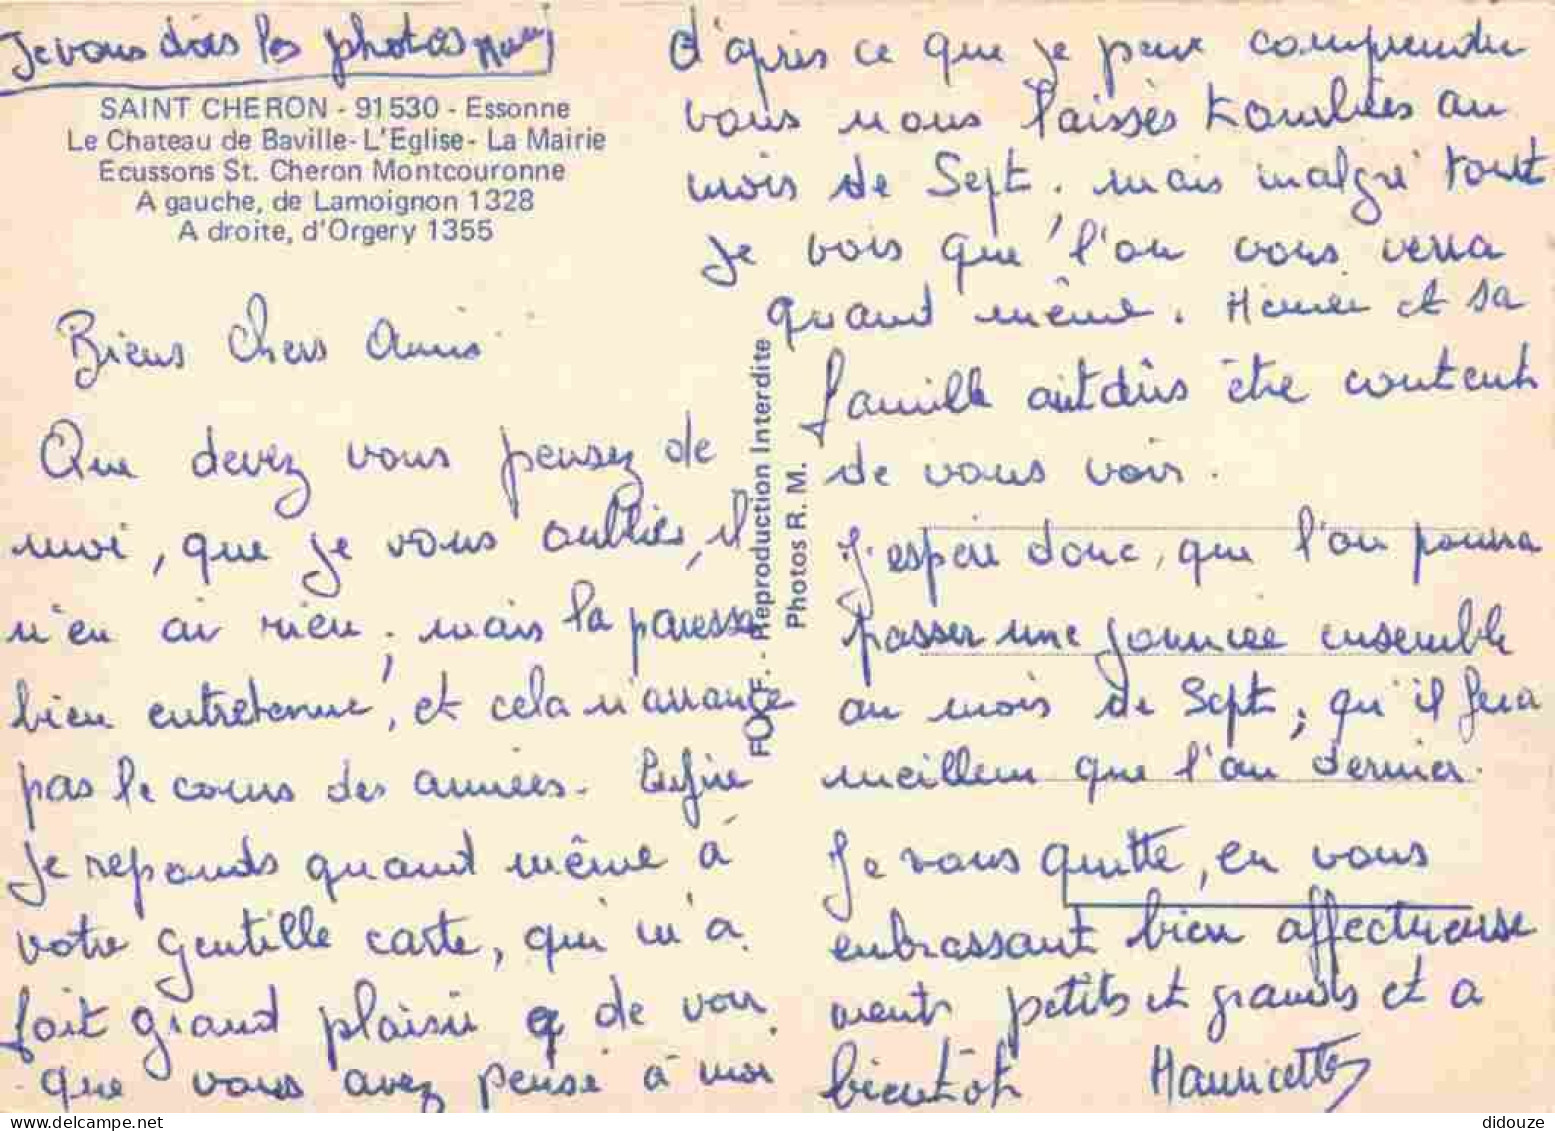 Je vous dois les photos
SAINT CHERON - 91530 - Essonne
Le Chateau de Baville - L'Eglise - La Mairie
Ecussons St. Cheron Montcouronne
A gauche, de Lamoignon 1328
A droite, d'Orgery 1355
Biens Chers Amis
Que devez vous pensez de
moi, que je vous oublies, il
n'en ai rien, mais la paresse
bien entretenue, et cela n'arrange
pas le cours des années. Enfin
je reponds quand même à
votre gentille carte, qui m'a
fait grand plaisir de voir
que vous avez pensé à moi
FOX - Reproduction Interdite
Photos R. M.
d'après ce que je peux comprendre
vous nous laissés tombées au
mois de Sept. mais malgré tout
je vois que l'on vous verra
quand même. et sa
famille ont dûs être content
de vous voir.
J'espère donc, que l'on pourra
passer une journee ensemble
au mois de Sept, qu'il fera
meilleur que l'an dernier.
Je vous quitte, en vous
enbrassant bien affectueuse
ment petits et grands et a
bientôt Mauricette
didouze